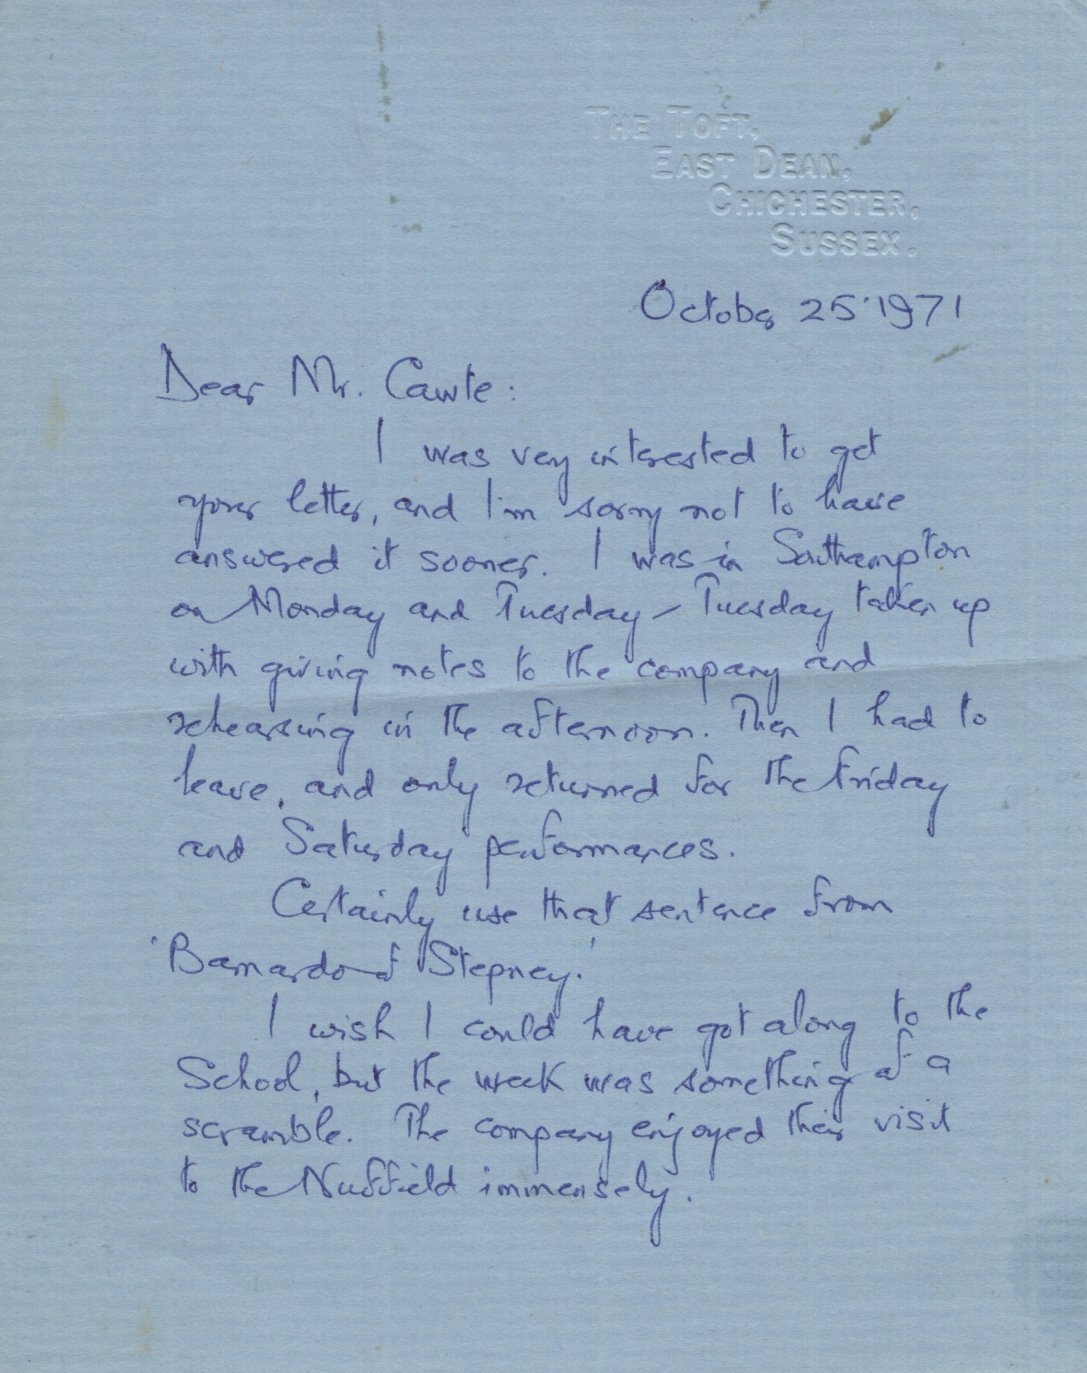 THE TOFT,
EAST DEAN,
CHICHESTER,
SUSSEX.
October 25·1971
Dear Mr. Cawte:
I was very interested to get
your letter, and I'm sorry not to have
answered it sooner. I was in Southampton
on Monday and Tuesday – Tuesday taken up
with giving notes to the company and
rehearsing in the afternoon. Then I had to
leave, and only returned for the Friday
and Saturday performances.
Certainly use that sentence from
'Barnardo of Stepney.'
I wish I could have got along to the
School, but the week was something of a
scramble. The company enjoyed their visit
to the Nuffield immensely.